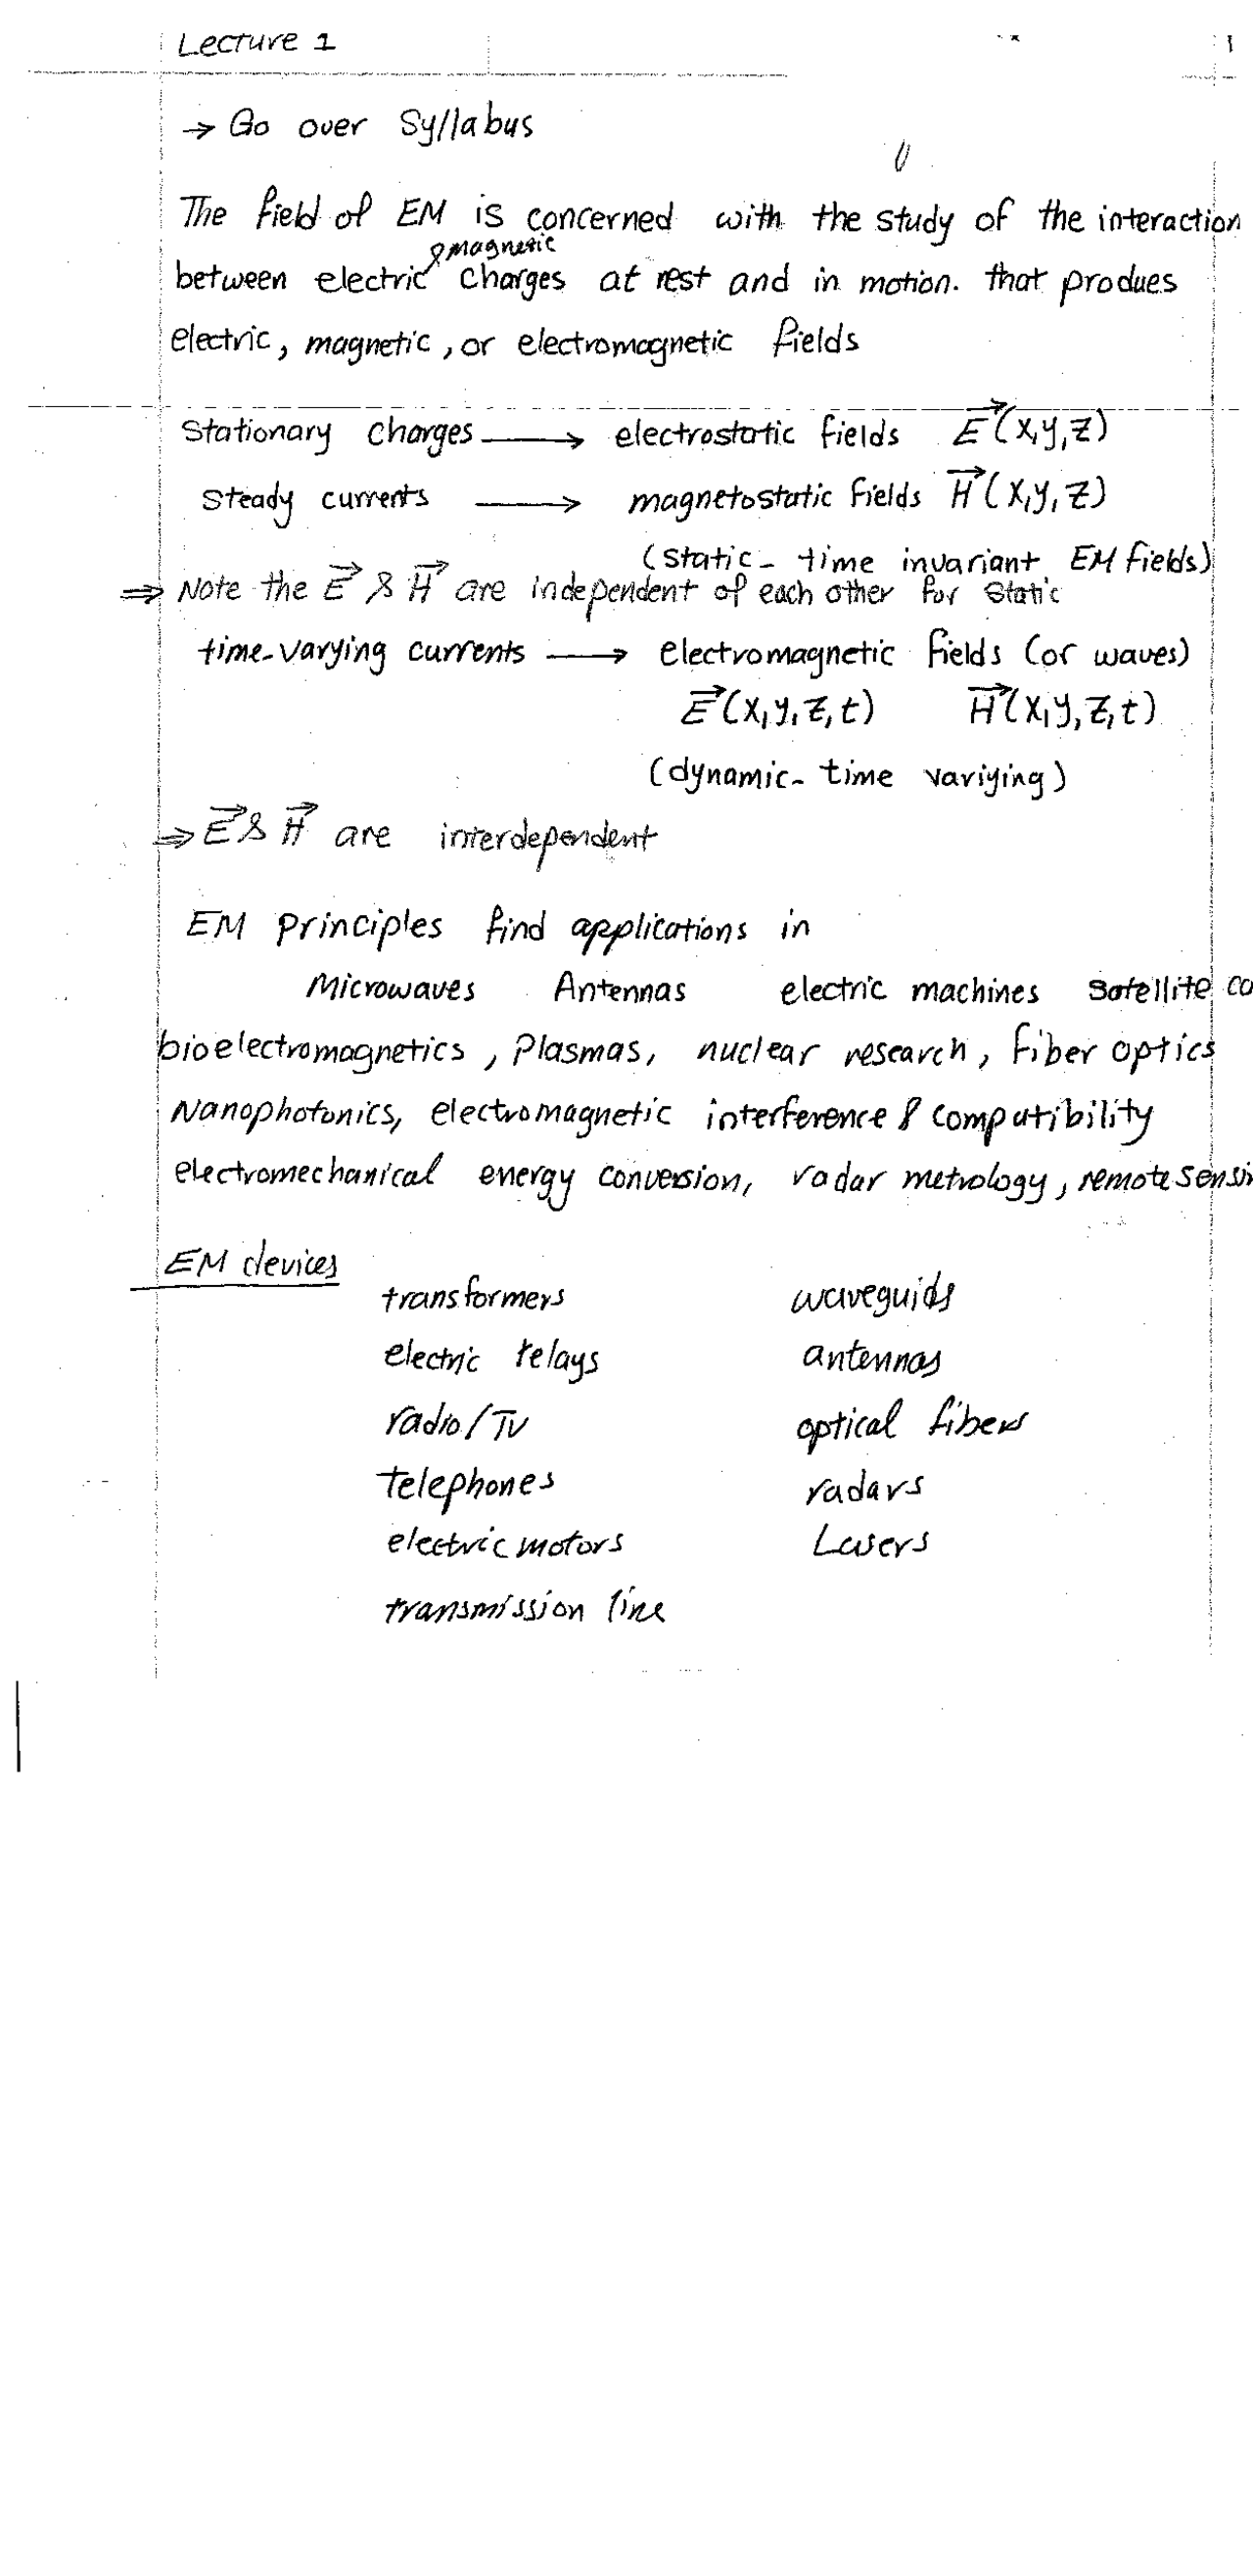 Lecture 1
1
→ Go over Syllabus
The field of EM is concerned with the study of the interaction
& magnetic
between electric charges at rest and in motion. that produes
electric, magnetic, or electromagnetic fields
Stationary charges ⟶ electrostatic fields E⃗(x,y,z)
Steady currents ⟶ magnetostatic fields H⃗(x,y,z)
(static - time invariant EM fields)
⇒ Note the E⃗ & H⃗ are independent of each other for static
time-varying currents ⟶ electromagnetic fields (or waves)
E⃗(x,y,z,t) H⃗(x,y,z,t)
(dynamic - time variying)
⇒ E⃗ & H⃗ are interdependent
EM principles find applications in
Microwaves Antennas electric machines Satellite co
bioelectromagnetics, Plasmas, nuclear research, fiber optics
Nanophotonics, electromagnetic interference & computibility
electromechanical energy conversion, radar metrology, remote sensi
EM devices
transformers waveguids
electric relays antennas
radio/TV optical fibers
telephones radars
electric motors Lasers
transmission line